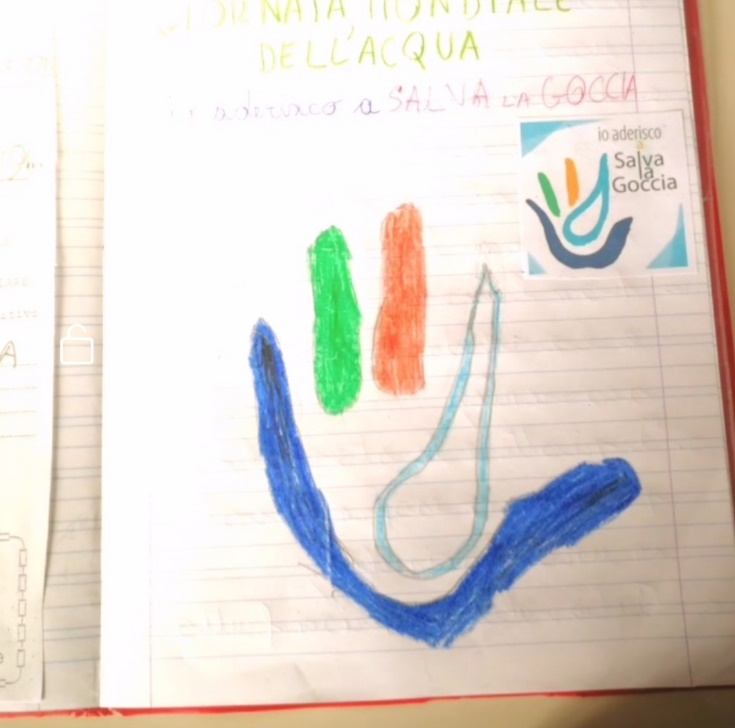 GIORNATA MONDIALE
DELL'ACQUA
Io aderisco a SALVA LA GOCCIA
io aderisco
Salva
la
Goccia
A